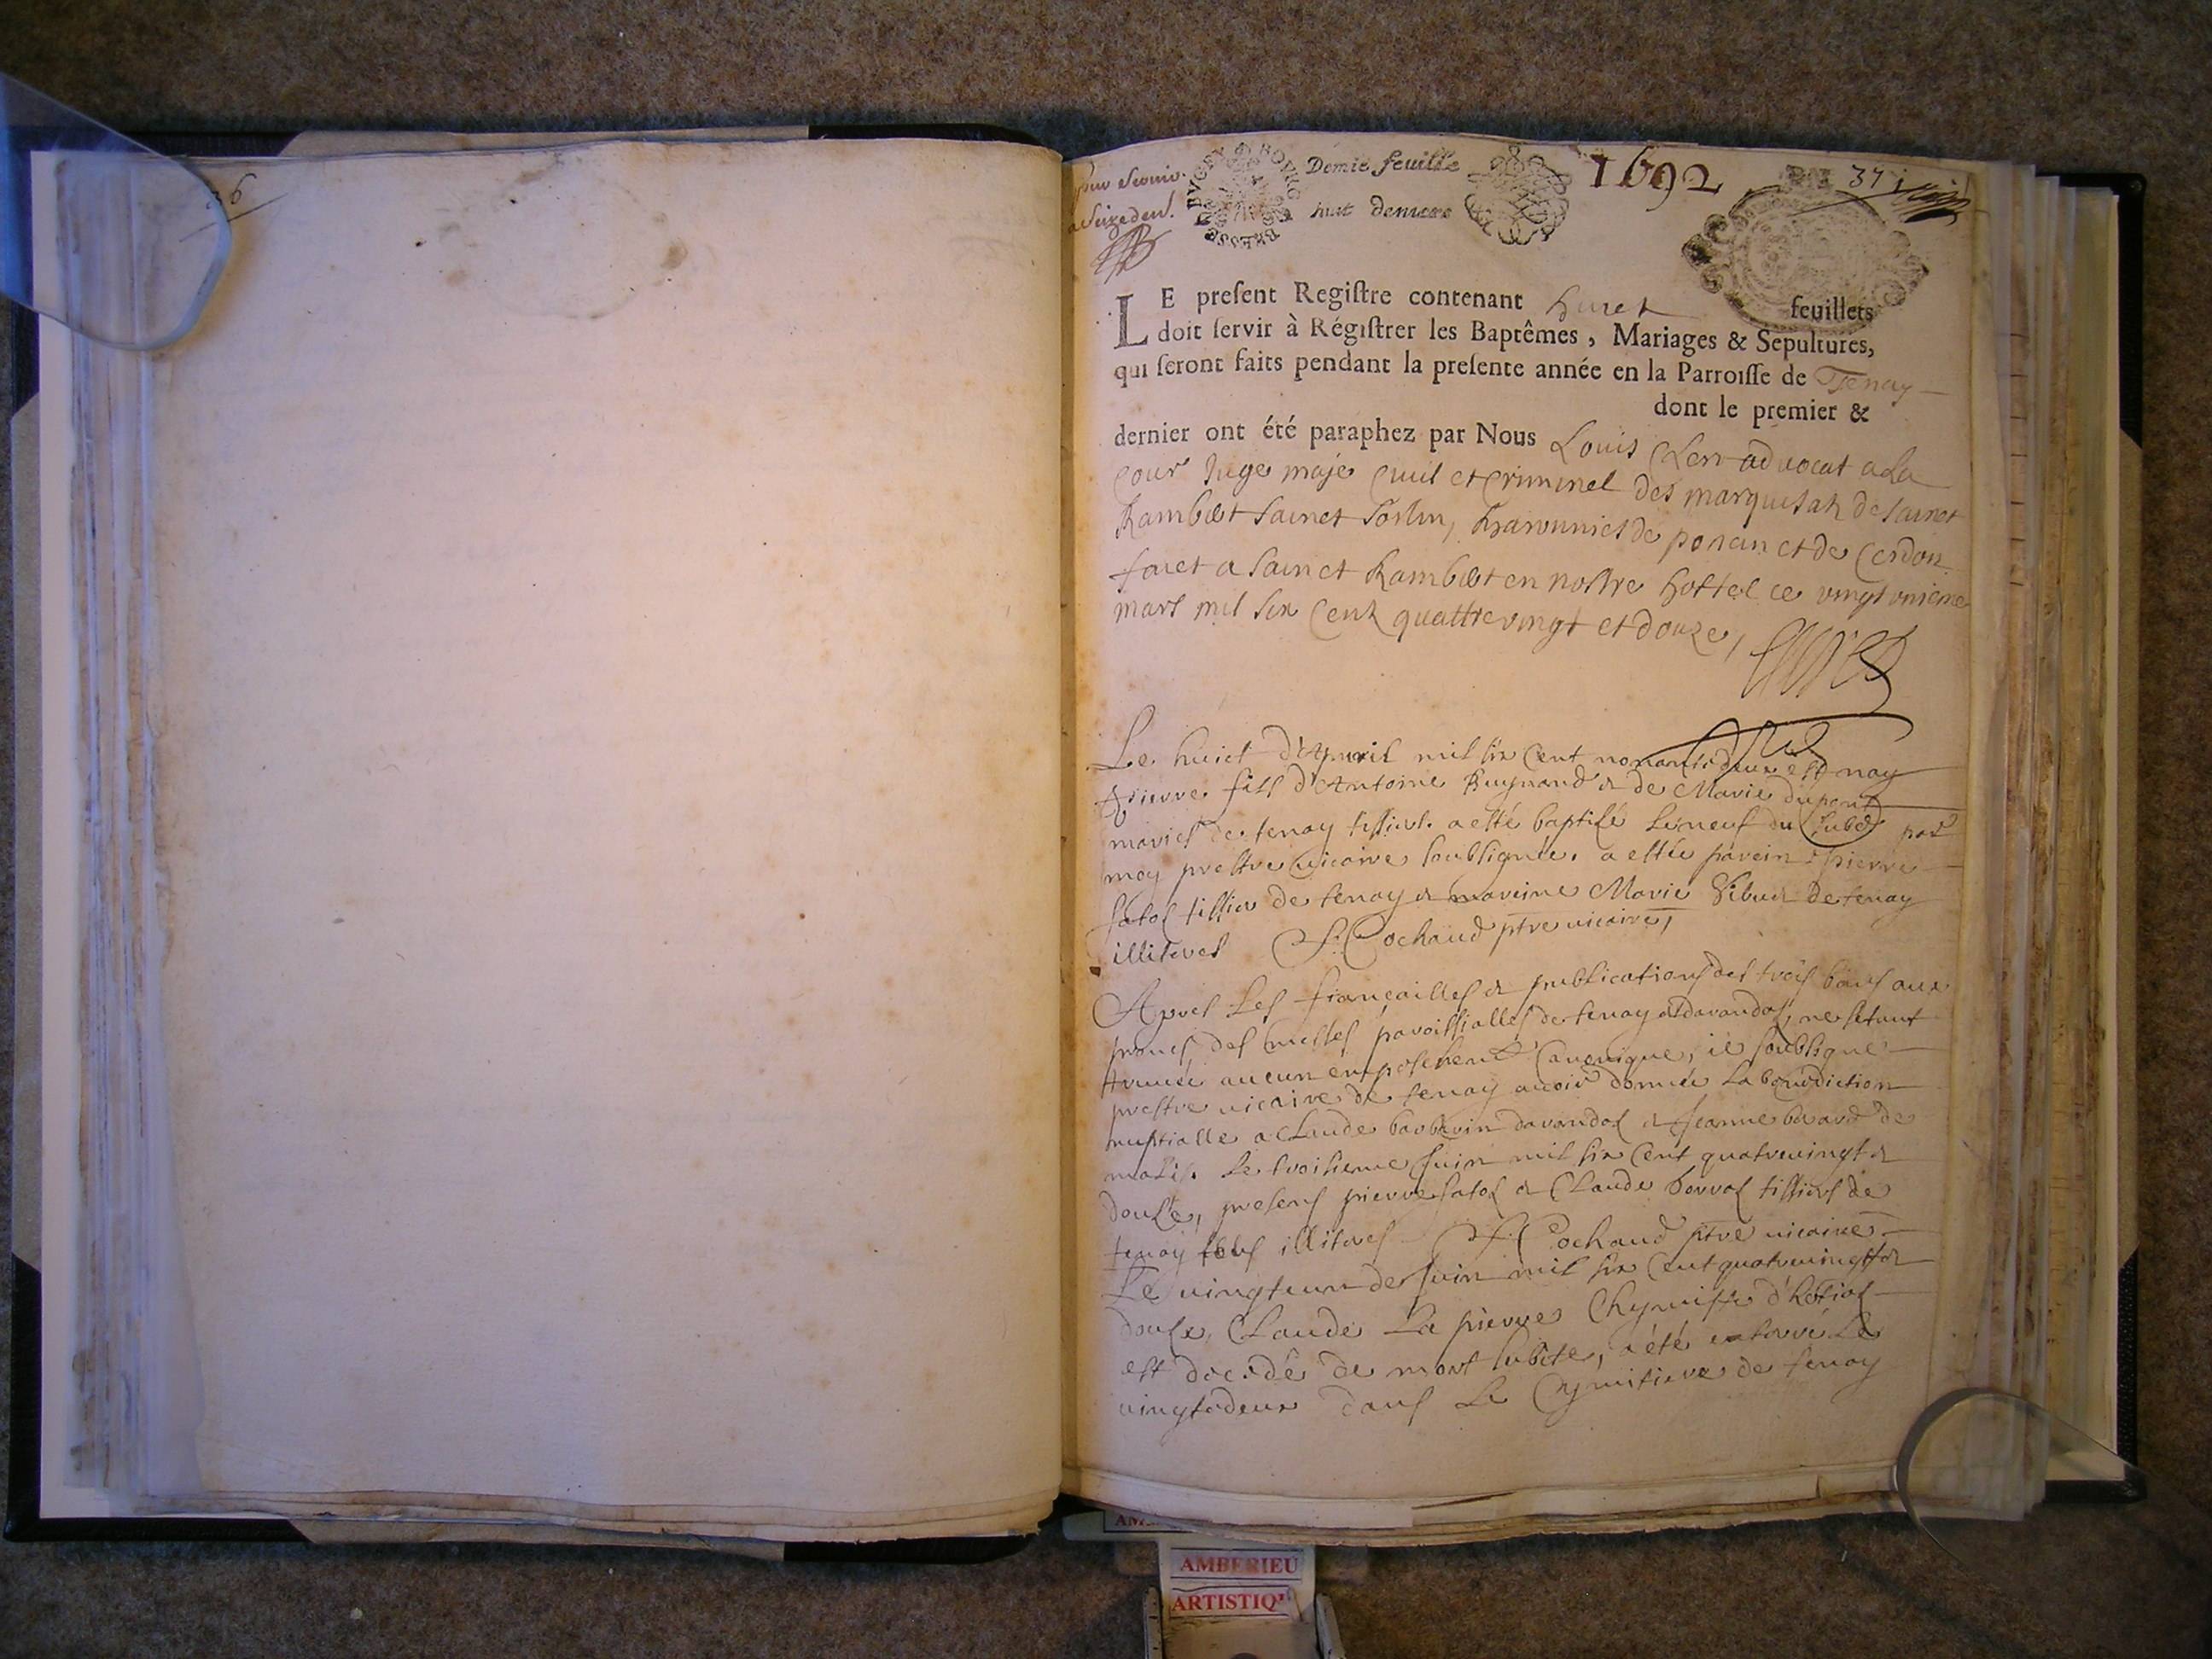 36
pour servir
a seize den.
Demie feuille
huit deniers
BOURG
BRESSE
1692
37
LE present Registre contenant huict feuillets
doit servir à Régistrer les Baptêmes, Mariages & Sepultures,
qui seront faits pendant la presente année en la Parroisse de Tenay
dont le premier &
dernier ont été paraphez par Nous Louis Clerc advocat a la
Cour Juge maje Civil et Criminel des marquisatz de sainct
Rambert Sainct Sorlin, baronnies de poncin et de Cerdon
faict a sainct Rambert en nostre hostel ce vingt unieme
mars mil six Centz quattre vingt et douze,
Le huict d'Apvril mil six Cent nonante deux est nay
pierre fils d'Antoine Reynand & de Marie dupont
mariés de tenay tissiers. a esté baptisé le neuf du susd par
moy prestre vicaire soubsignée. a estée parein pierre
satos tissier de tenay & mareine Marie de tenay
illiteres F. Cochand ptre vicaire,
Apres Les fiançailles & publications des trois bans aux
prones des messes paroissialles de tenay & darandas, ne s'etant
treuvée aucun empeschement Canonique, ie soubsigné
prestre vicaire de tenay avoir donnée La benediction
nuptialle a Claude barberin darandas & Jeanne bavard de
malis. Le troisieme Juin mil six Cent quatrevingt &
douse, presens pierre satos & Claude borras tissiers de
tenay tous illiteres F. Cochand ptre vicaire
Le vingteun de Juin mil six Cent quatrevingt &
douse, Claude La pierre d'hostias
est decedé de mort subite, a été enterré Le
vingtedeux dans Le Cymitiere de tenay
AMBERIEU
ARTISTIQ